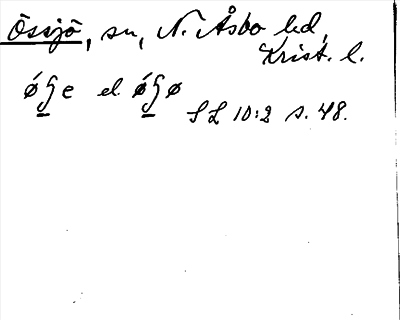 Össjö, sn, N. Åsbo hd,
Krist. l.
ǿʃe el. ǿʃø
SL 10:2 s. 48.